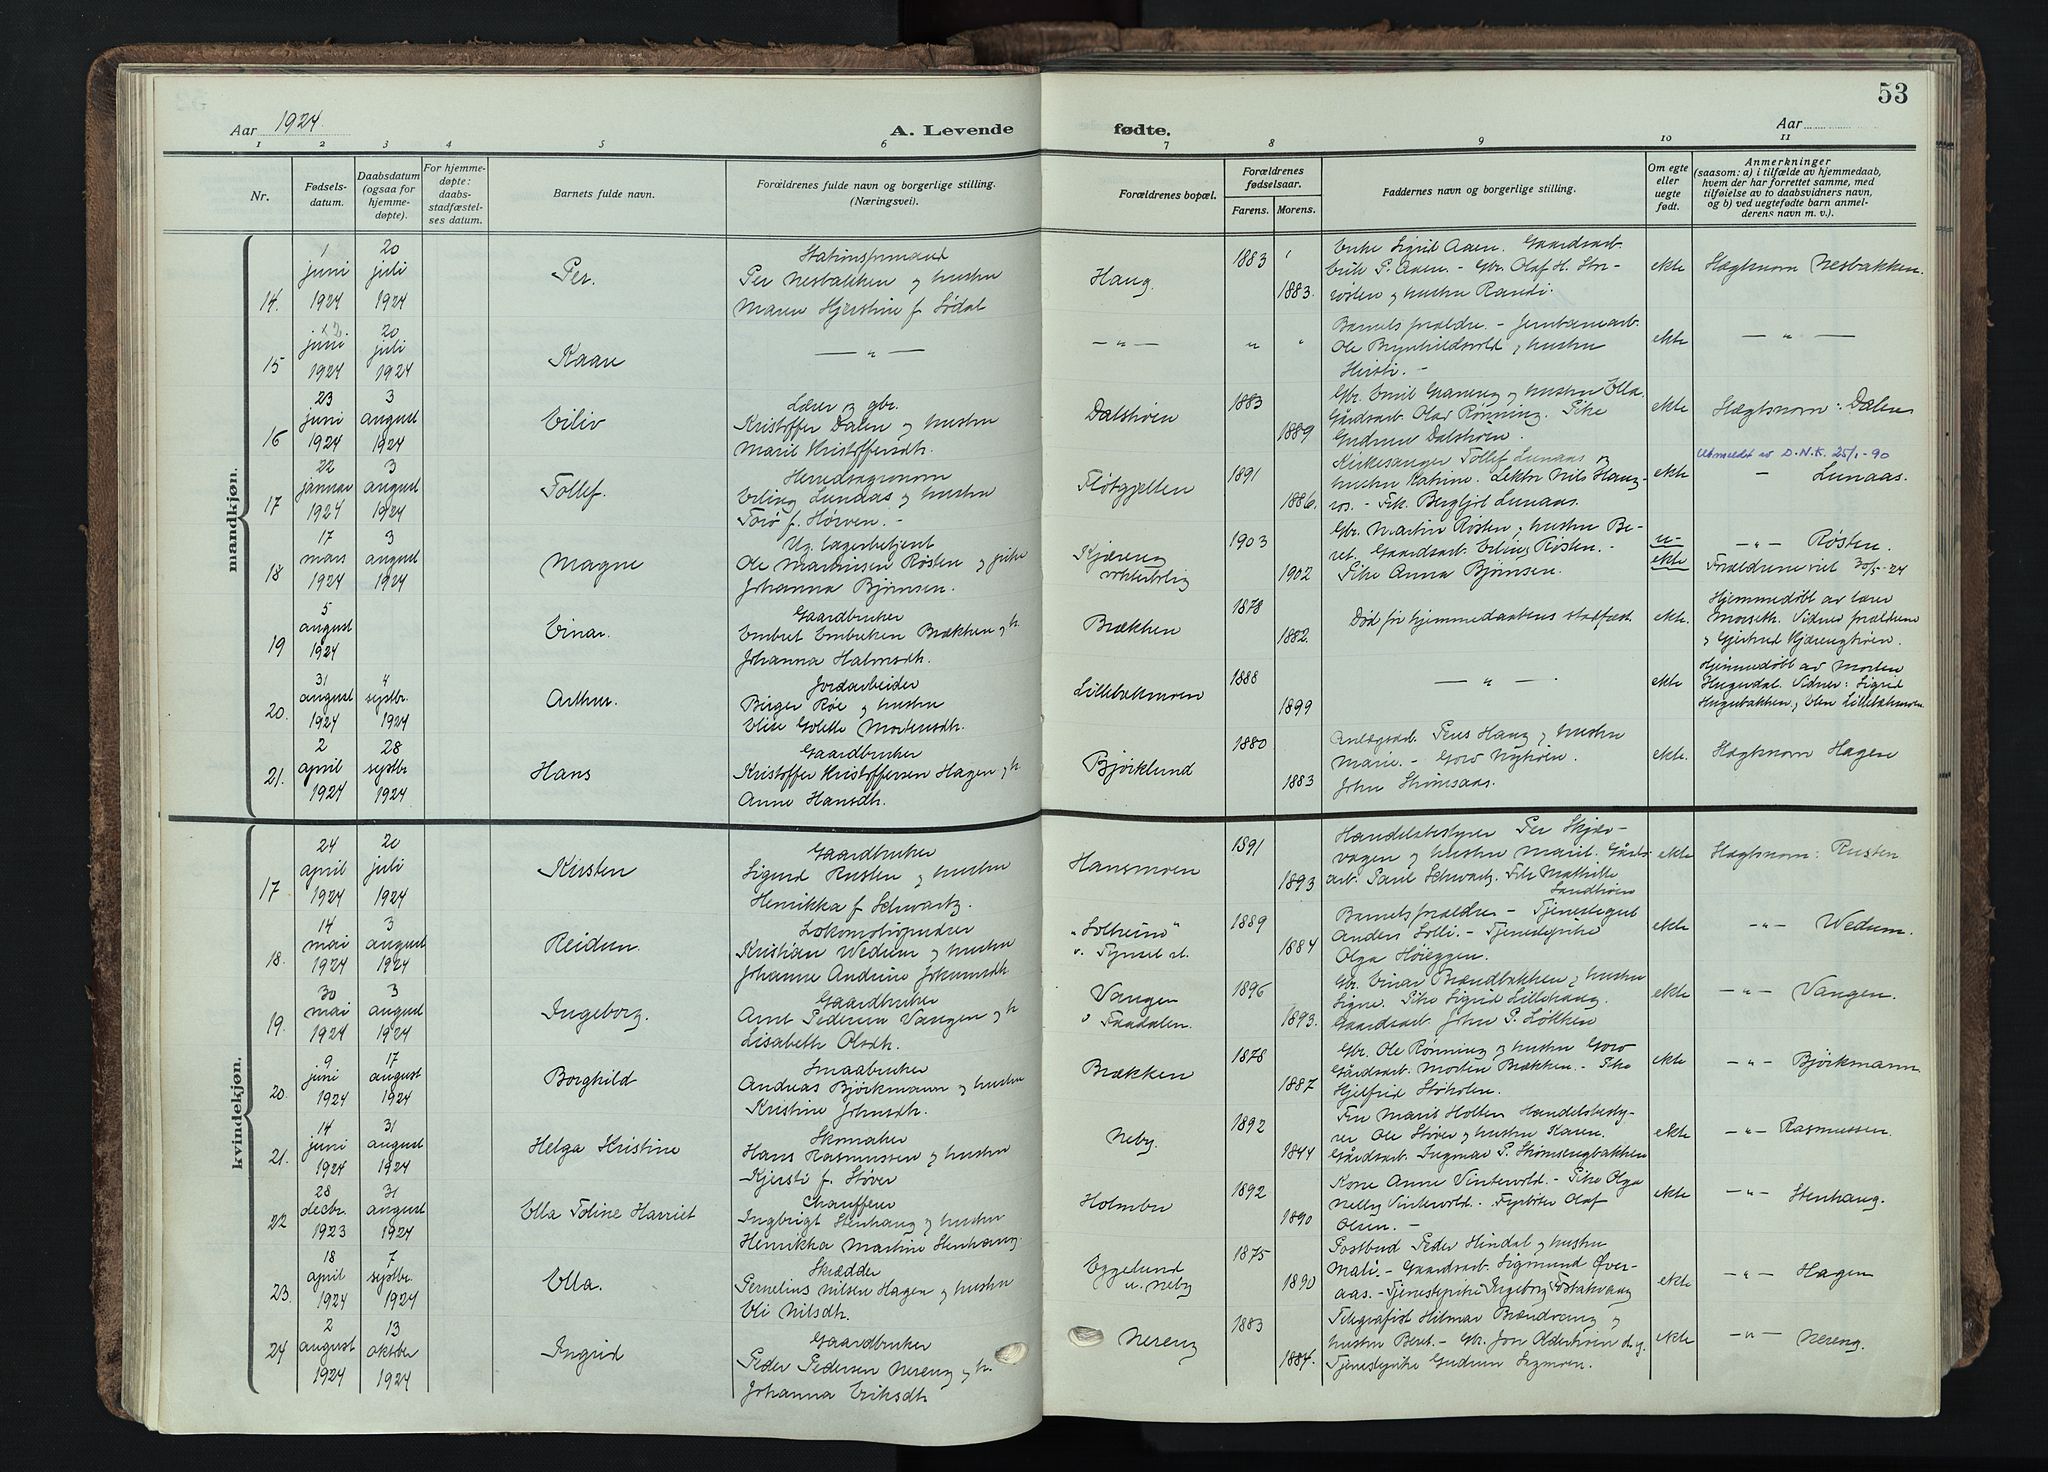 53
Aar 1924.
A. Levende
fødte.
Aar
1 2 3 4 5 6 7 8 9 10 11
Nr.
Fødsels-
datum.
Daabsdatum
(ogsaa for
hjemme-
døpte).
For hjemme-
døpte:
daabs-
stadfæstel-
ses datum.
Barnets fulde navn.
Forældrenes fulde navn og borgerlige stilling.
(Næringsvei).
Forældrenes bopæl.
Forældrenes
fødselsaar.
Farens. Morens.
Faddernes navn og borgerlige stilling.
Om egte
eller
uegte
født.
Anmerkninger
(saasom: a) i tilfælde av hjemmedaab,
hvem der har forrettet samme, med
tilføielse av to daabsvidners navn,
og b) ved uegtefødte barn anmel-
derens navn m. v.).
mandkjøn.
14. 1 juni 1924
20 juli 1924
Per.
Per Nesbakken og hustru
Maren Hjerstine f. Sødal
Haug.
1883
1883.
Enke Sigrid Aaen. Gaardsarb.
Erik P. Aaen. - Gbr. Olaf H. Stor-
røsten og hustru Randi.
ekte
Slegtsnavn Nesbakken.
15 juni 1924
20 juli 1924
Kaare
— „ —
— „ —
„ „
Barnets forældre. - Jernbanearb.
Ole Brynhildsvold og hustru
Kirsti. -
ekte
— „ —
16 23 juni 1924
3 august 1924
Eiliv
Lærer og gbr.
Kristoffer Dalen og hustru
Marit Kristoffersdtr.
Dalstrøen
1883
1889
Gbr. Emil Graneng og hustru Olla.
Gårdsarb. Olav Rønning. Pike
Gudrun Dalstrøen.
ekte
Slegtsnavn: Dalen
17 22 januar 1924
3 august 1924
Tollef.
Herredsagronom
Erling Lunaas og hustru
Toro f. Horven. -
Fløtgjelten
1891
1886.
Kirkesanger Tollef Lunaas og
hustru Katrine. Lektor Nils Haug-
ros. - Frk. Bergljot Lunaas.
ekte
Utmeldt av D.N.K. 25/1-90
— Lunaas.
18 17 mars 1924
3 august 1924
Magne
Ug. lagerbetjent
Ole Martinsen Røsten og pike
Johanna Bjørnsen.
Kjæreng
1903
1902
Gbr. Martin Røsten og hustru Be-
ret. Gaardsarb. Erling Røsten. -
Pike Anna Bjørnsen.
u-
ekte
— „ — Røsten.
Forældrene viet 30/5-24
19 5 august 1924
Einar.
Gaardbruker
Embret Embretsen Brækken og h.
Johanna Halvorsdtr.
Brækken
1878
1882.
Død før hjemmedaabens stadfæst.
ekte.
Hjemmedøbt av lærer
Morseth. Vidner forældrene
og Gjertrud Kjærengtrøen.
20. 31 august 1924
4 septbr. 1924
Arthur.
Jordarbeider
Birger Røe og hustru
Elise Golette Mortensdtr.
Lillebakmoen
1888
1899
— „ —
ekte
Hjemmedøbt av Morten
Hugudal. Vidner: Sigrid
Hugubakken, Elen Lillebakmoen
21. 2 april 1924
28 septbr 1924
Hans
Gaardbruker
Kristoffer Kristoffersen Hagen og h.
Anne Hansdtr.
Bjørklund
1880
1883
Anlægsarb. Jens Haug og hustru
Marie. - Goro Nytrøen.
John Strømsaas.
ekte.
Slegtsnavn Hagen
kvindekjøn.
17 24 april 1924
20 juli 1924
Kirsten
Gaardbruker
Sigurd Rusten og hustru
Henrikka f. Schwartz.
Hansmoen
1891
1893
Handelsbestyrer Per Skjær-
vagen og hustru Marit. Gårds-
arb. Paul Schwartz. Frk Mathilde
Sandtrøen
ekte
Slegtsnavn: Rusten
18. 14 mai 1924
3 august 1924
Reidun.
Lokomotivpudser
Kristian Wedum og hustru
Johanne Andrine Johansdtr.
„Solheim“
v. Tynset st.
1889
1884
Barnets forældre - Tjenestegut
Anders Lolli. - Tjenestepike
Olga Høieggen.
ekte
— „ — Wedum.
19. 30 mai 1924
3 august 1924
Ingeborg.
Gaardbruker
Arnt Pedersen Vangen og h.
Lisabeth Olsdtr.
Vangen
v Faadalen.
1896
1893.
Gbr. Einar Brændbakken og hustru
Signe. Pike Sigrid Lillehaug.
Gaardsarb. John P. Løkken
ekte
— „ — Vangen.
20. 9 juni 1924
17 august 1924
Borghild
Smaabruker
Andreas Bjørkmann og hustru
Kristine Johnsdtr.
Brækken
1878
1887
Gbr. Ole Rønning og hustru Goro
Gårdsarb. Morten Brækken. - Pike
Hjelfrid Støholen.
ekte
— „ — Bjørkmann
21. 14 juni 1924
31 august 1924
Helga Kristine
Skomaker
Hans Rasmussen og hustru
Kjersti f. Støver
Neby.
1892
1844
Fru Marit Holten Handelsbesty-
rer Ole Støver og hustru Karen.
Gårdsarb. Ingmar P. Strømsengbakken
ekte
— „ — Rasmussen.
22 28 decbr. 1923
31 august 1924
Ella Toline Harriet
Chauffeur
Ingbrigt Stenhaug og hustru
Henrikka Martine Stenhaug.
Holmbu
1892
1890
Kone Anne Vintervold. - Pike Olga
Nelly Vintervold. - Fyrbøter Olaf
Olsen. -
ekte
— „ — Stenhaug.
23. 18 april 1924
7 septbr. 1924
Ella.
Skrædder
Pernelius Nilsen Hagen og hustru
Eli Nilsdtr.
Eggelund
v. Neby
1875
1890
Postbud Peder Hindal og hustru
Mali. - Gaardsarb. Sigmund Øver-
aas. - Tjenestepike Ingeborg
ekte
— „ — Hagen
24 2 august 1924
13 oktober 1924
Ingrid
Gaardbruker
Peder Pedersen Nereng og h.
Johanna Eriksdtr.
Nereng
1883
1884.
Telegrafist Hilmar Brændvang og
hustru Beret. - Gbr. Jon Aldertrøen d.y.
Tjenestepike Gudrun Sizmoen.
ekte
— „ — Nereng.